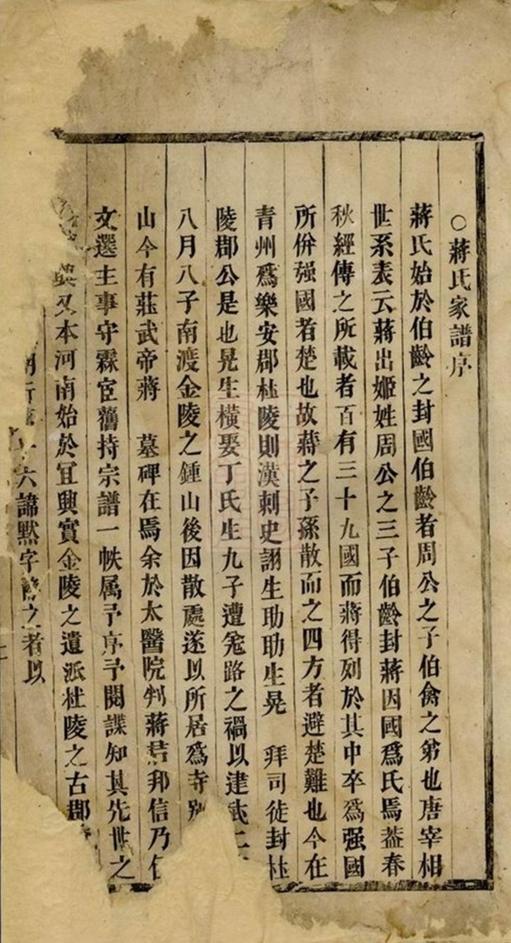 ○蔣氏家譜序
蔣氏始於伯齡之封國伯齡者周公之子伯禽之弟也唐宰相
世系表云蔣出姬姓周公之三子伯齡封蔣因國爲氏焉葢春
秋經傳之所載者百有三十九國而蔣得列於其中卒爲强國
所併强國者楚也故蔣之子孫散而之四方者避楚難也今在
青州爲樂安郡杜陵則漢刺史詡生助助生晃 拜司徒封杜
陵郡公是也晃生橫娶丁氏生九子遭寃路之禍以建武二
八月八子南渡金陵之鍾山後因散處遂以所居爲寺
山今有莊武帝蔣 墓碑在焉余於太醫院判蔣君邦信乃
文選主事守霖宦舊持宗譜一帙属予序予閱諜知其先世之
興又本河南始於宜興實金陵之遺派杜陵之古郡
六諱默字之者以